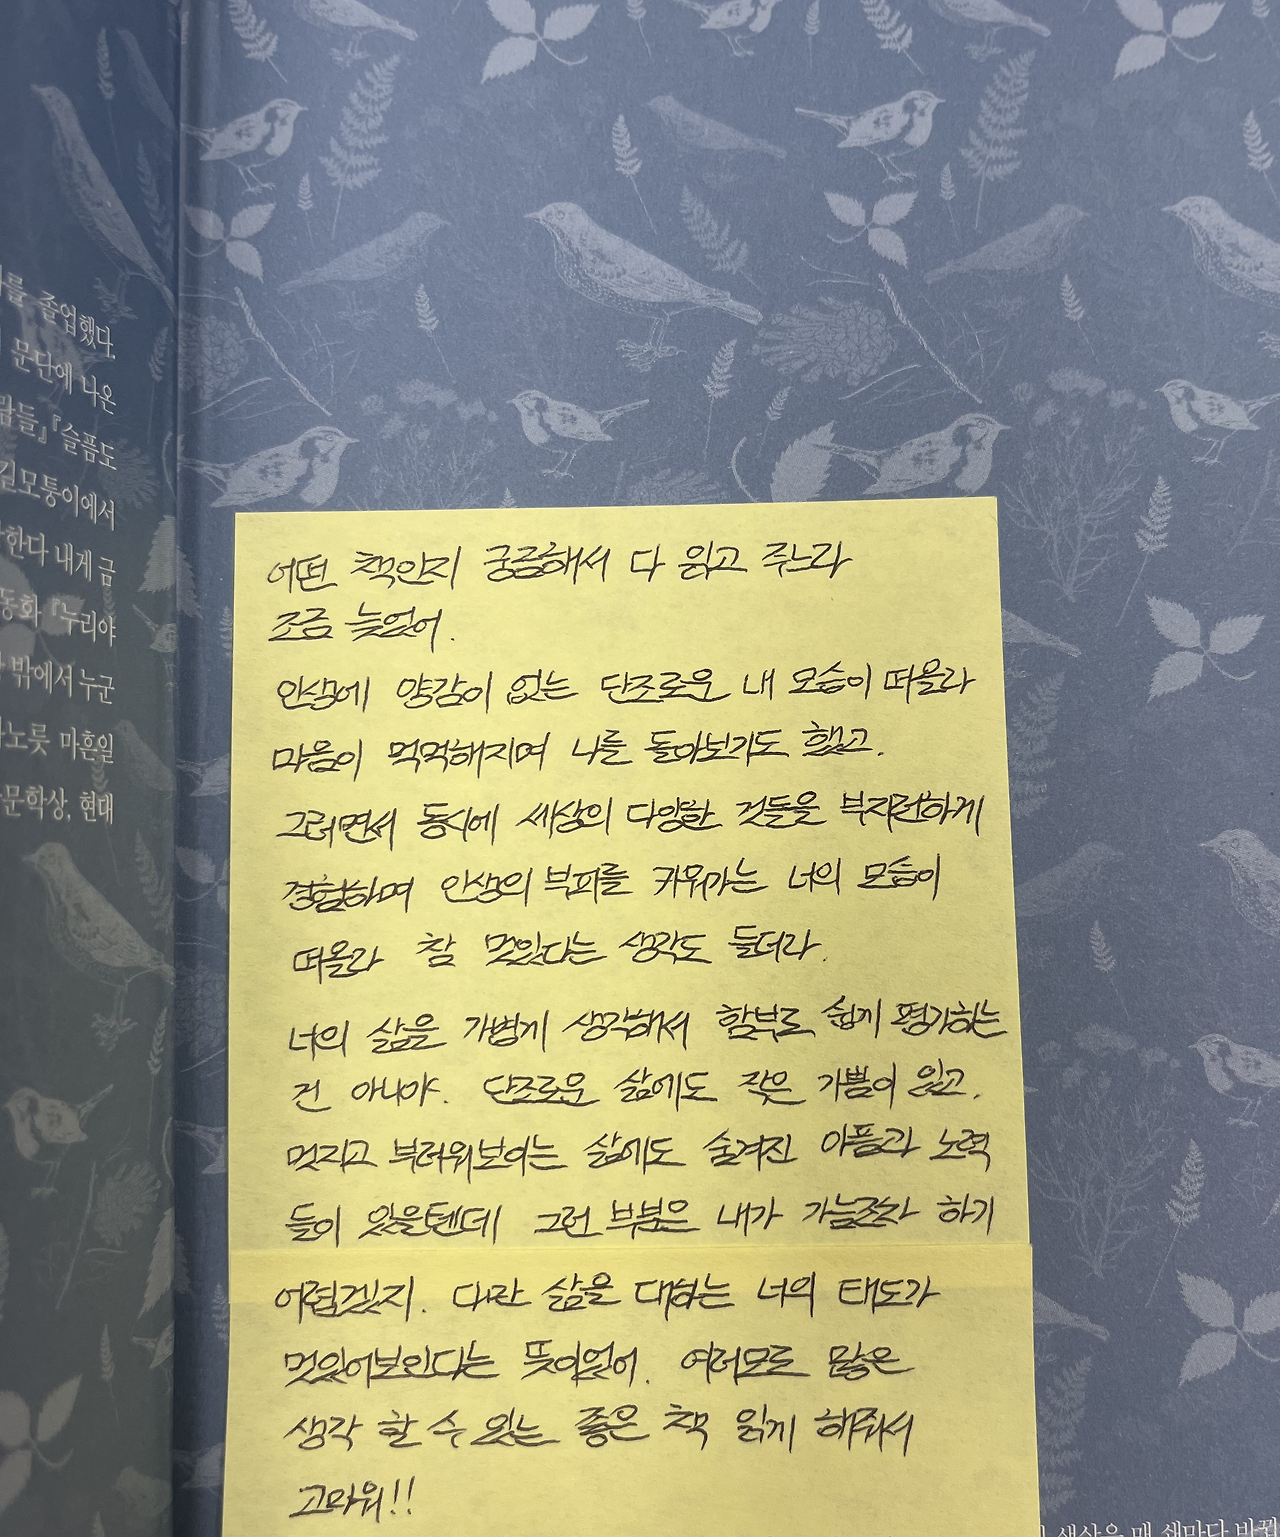 를 졸업했다.
문단에 나온
람들』 『슬픔도
길모퉁이에서
한다 내게 금
동화 『누리야
밖에서 누군
노릇 마흔일
문학상, 현대
어떤 책인지 궁금해서 다 읽고 주느라
조금 늦었어.
인생에 양감이 없는 단조로운 내 모습이 떠올라
마음이 먹먹해지며 나를 돌아보기도 했고.
그러면서 동시에 세상의 다양한 것들을 부지런하게
경험하며 인생의 부피를 키워가는 너의 모습이
떠올라 참 멋있다는 생각도 들더라.
너의 삶을 가볍게 생각해서 함부로 쉽게 평가하는
건 아니야. 단조로운 삶에도 작은 기쁨이 있고,
멋지고 부러워보이는 삶에도 숨겨진 아픔과 노력
들이 있을텐데 그런 부분은 내가 가늠조차 하기
어렵겠지. 다만 삶을 대하는 너의 태도가
멋있어보인다는 뜻이었어. 여러모로 많은
생각 할 수 있는 좋은 책 읽게 해줘서
고마워!!
색상은 매 쇄마다 바뀝